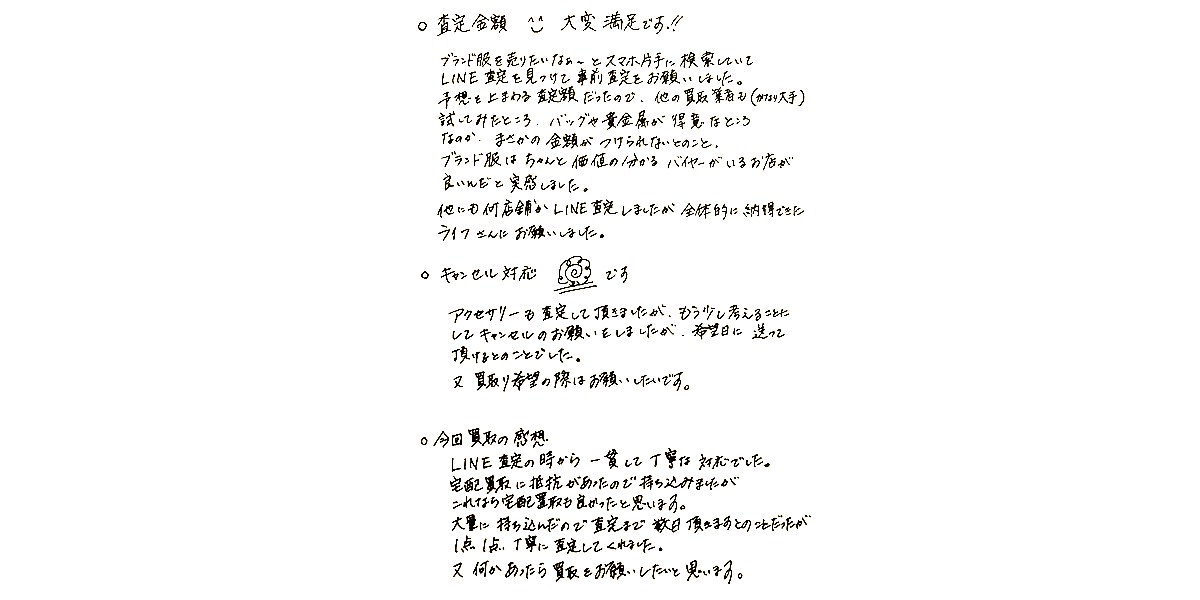 ○ 査定金額 ^^ 大変満足です!!
ブランド服を売りたいなぁ〜とスマホ片手に検索していて
LINE査定を見つけて事前査定をお願いしました。
予想を上まわる査定額だったので、他の買取業者も(かなり大手)
試してみたところ、バッグや貴金属が得意なところ
なのか、まさかの金額がつけられないとのこと、
ブランド服はちゃんと価値の分かるバイヤーがいるお店が
良いんだと実感しました。
他にも何店舗かLINE査定しましたが全体的に納得できた
ライフさんにお願いしました。
○ キャンセル対応 です
アクセサリーも査定して頂きましたが、もう少し考えることに
してキャンセルのお願いをしましたが、希望日に送って
頂けるとのことでした。
又買取り希望の際はお願いしたいです。
○ 今回買取の感想
LINE査定の時から一貫して丁寧な対応でした。
宅配買取に抵抗があったので持ち込みましたが
これなら宅配買取も良かったと思います。
大量に持ち込んだので査定まで数日頂きますとのことだったが
1点1点、丁寧に査定してくれました。
又何かあったら買取をお願いしたいと思います。